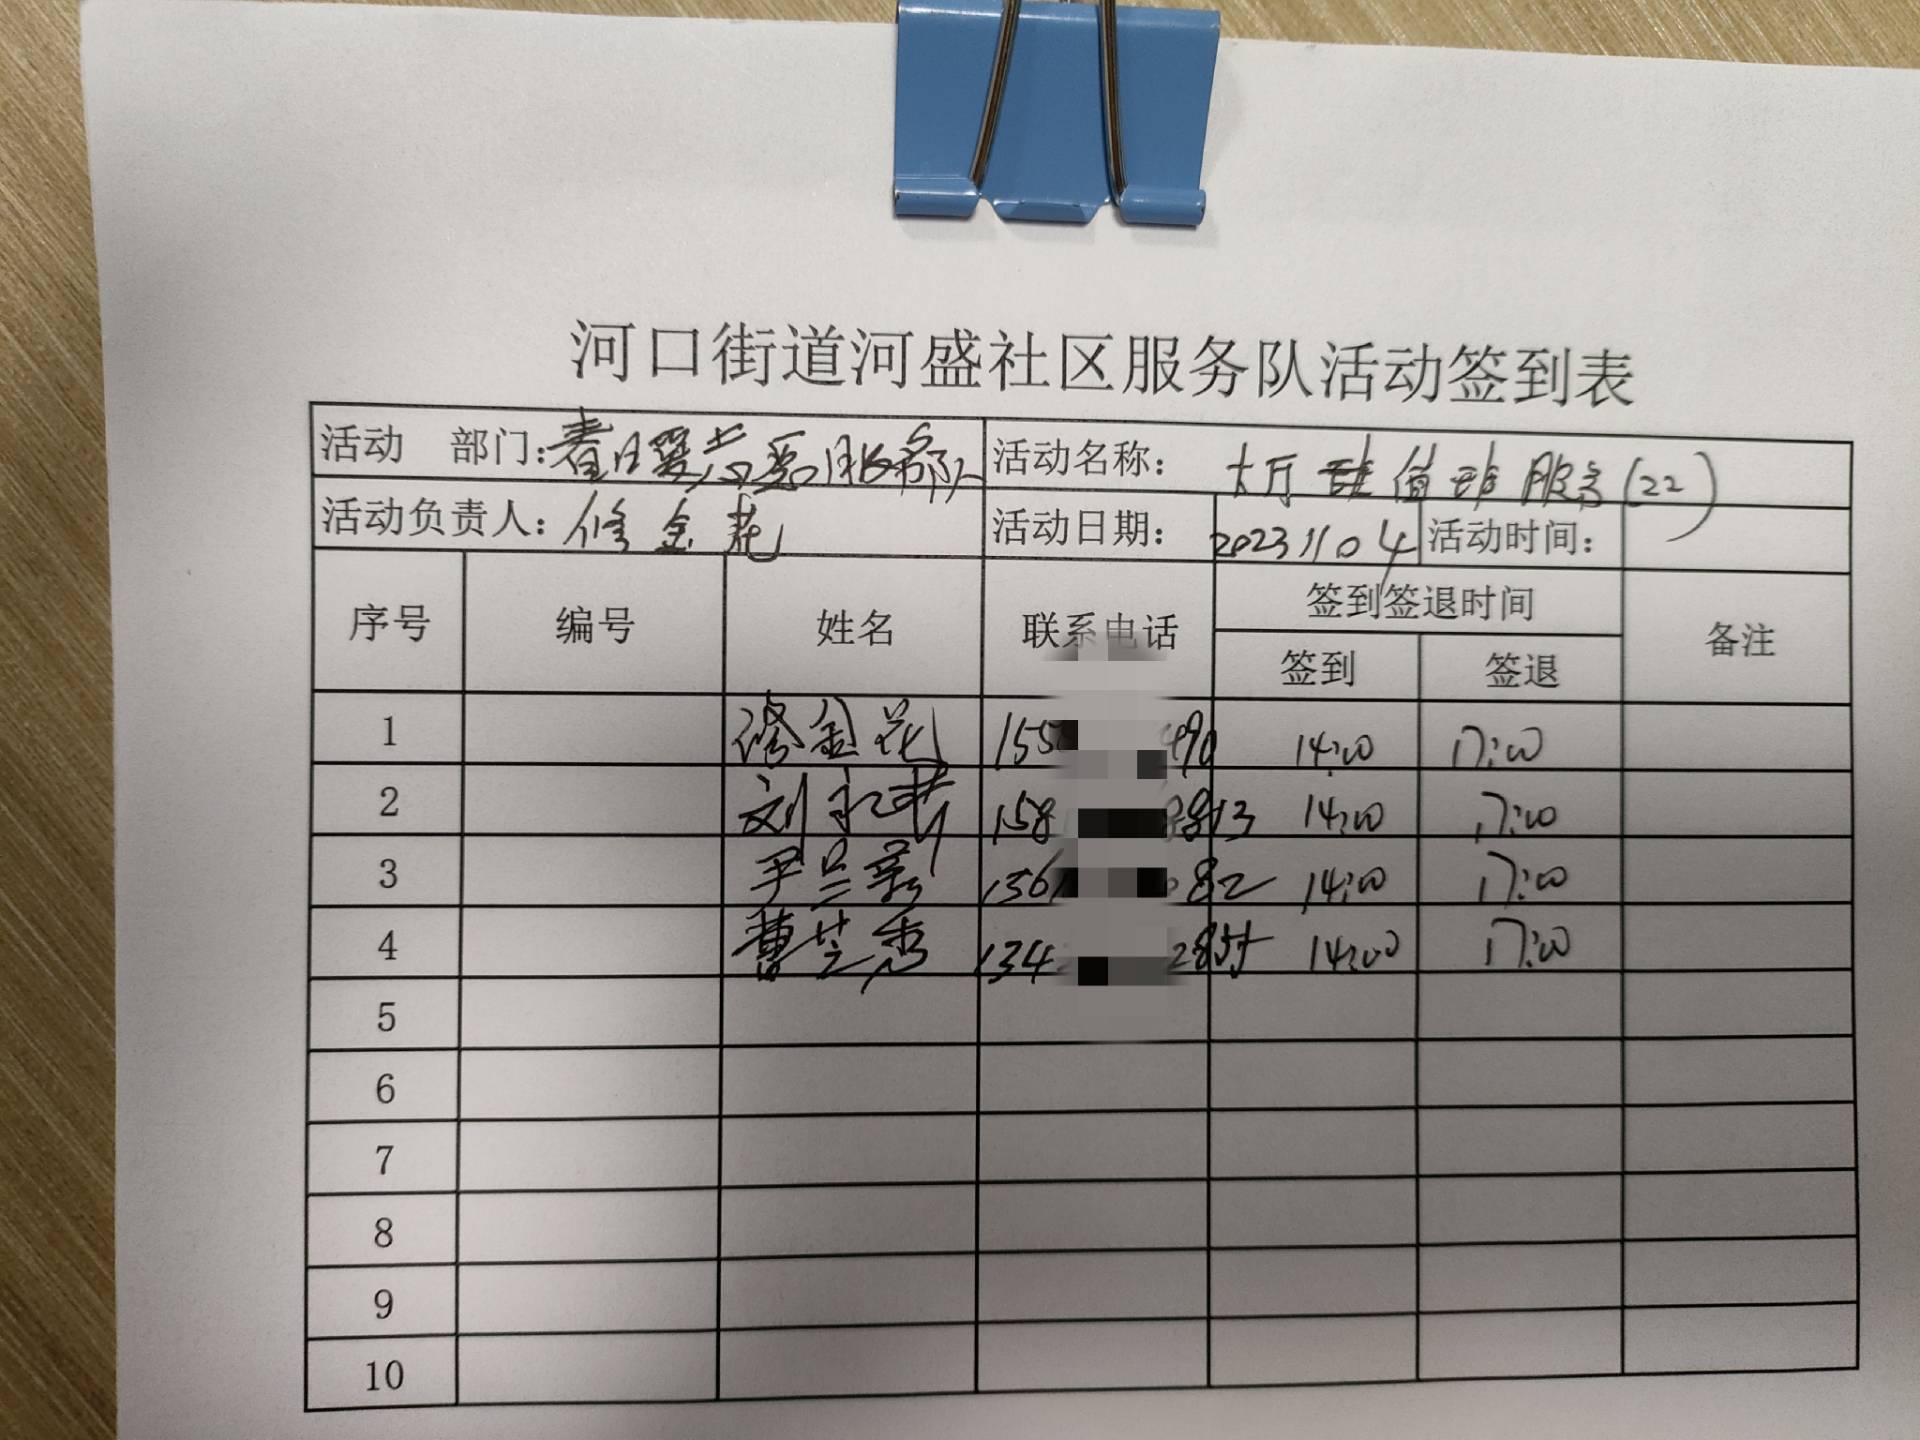 河口街道河盛社区服务队活动签到表
活动 部门：春日暖 服务队 活动名称： 大厅 值班服务(22)
活动负责人：修金花 活动日期： 20231104 活动时间：
序号 编号 姓名 联系电话 签到签退时间 备注
签到 签退
1 修金花 155 490 14:00 17:00
2 刘永 158 8813 14:00 17:00
3 尹兰 156 82 14:00 17:00
4 曹芝秀 134 285 14:00 17:00
5
6
7
8
9
10